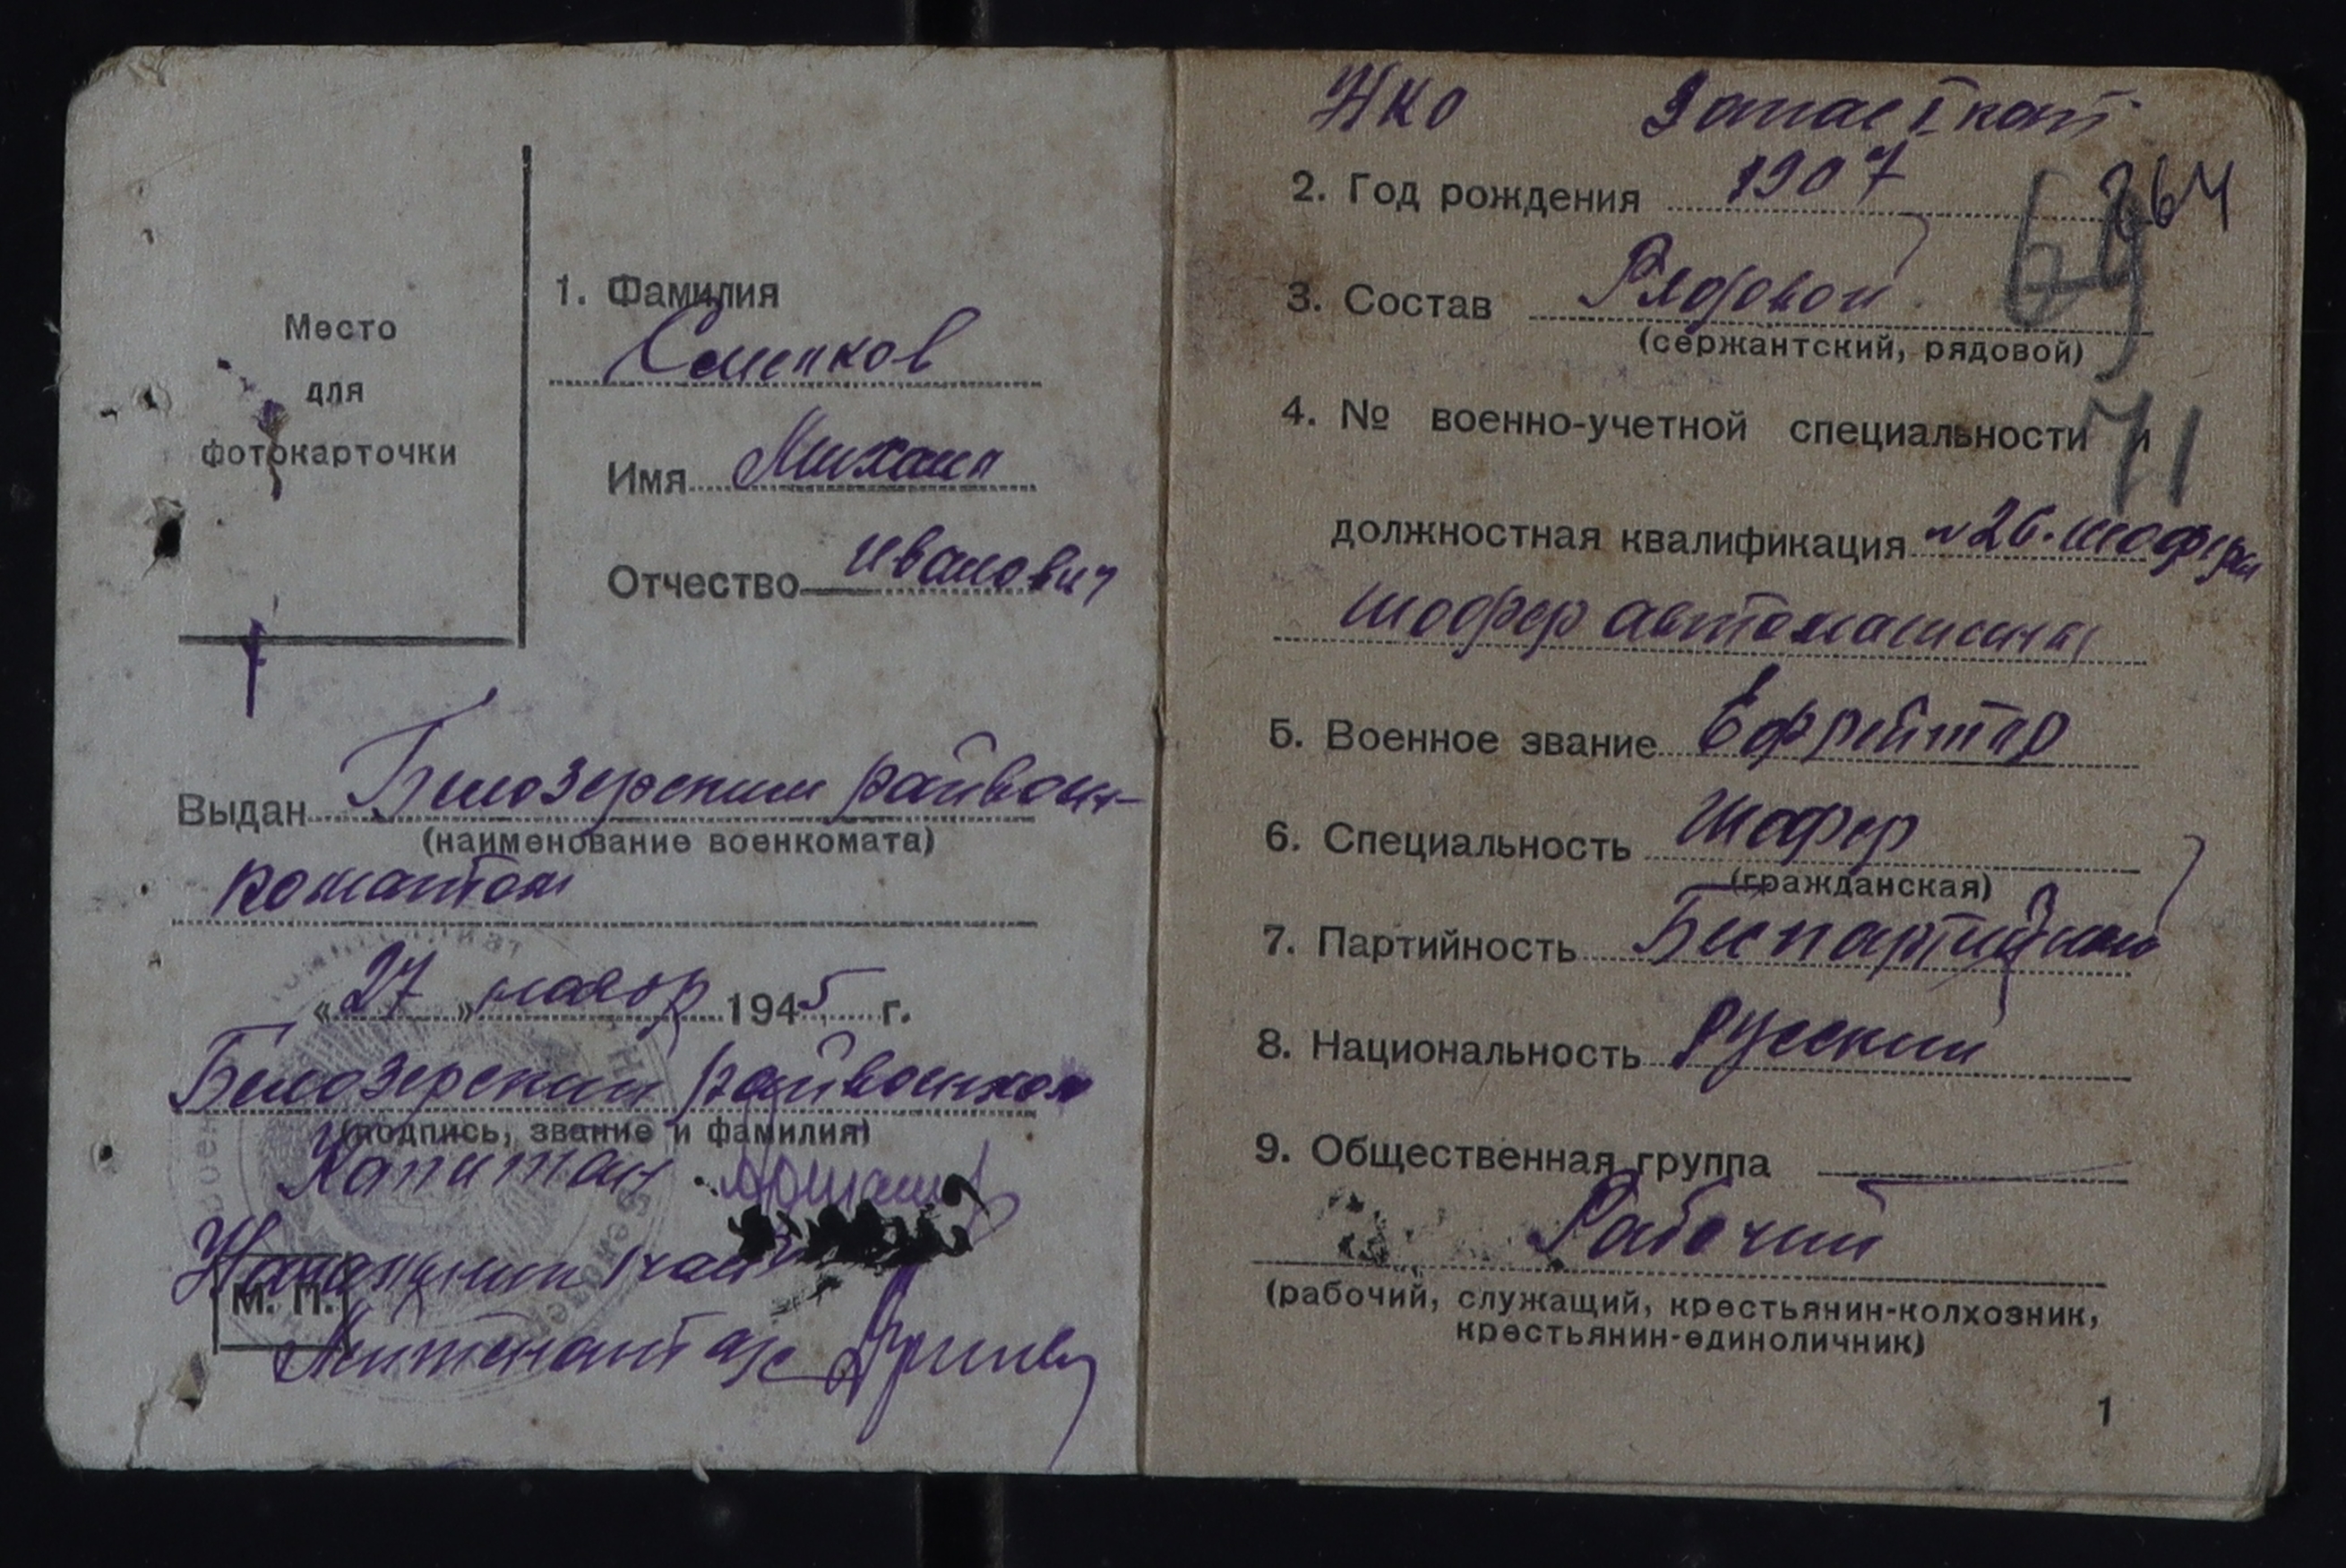 Место
для
фотокарточки
1. Фамилия
Смелков
Имя Михаил
Отчество Иванович
Выдан Белозерским райвоен-
(наименование военкомата)
коматом
«27» ноябр 1945 г.
Белозерский райвоенком
(подпись, звание и фамилия)
Капитан
Начальник I части
М. П.
Лейтенант а/с
НКО Запас I кат
2. Год рождения 1907
264
69
3. Состав Рядовой
(сержантский, рядовой)
4. № военно-учетной специальности и
71
должностная квалификация №26. шофера
шофер автомашины
5. Военное звание Ефрейтор
6. Специальность Шофер
(гражданская)
7. Партийность Беспартийный
8. Национальность Русский
9. Общественная группа
Рабочий
(рабочий, служащий, крестьянин-колхозник,
крестьянин-единоличник)
1